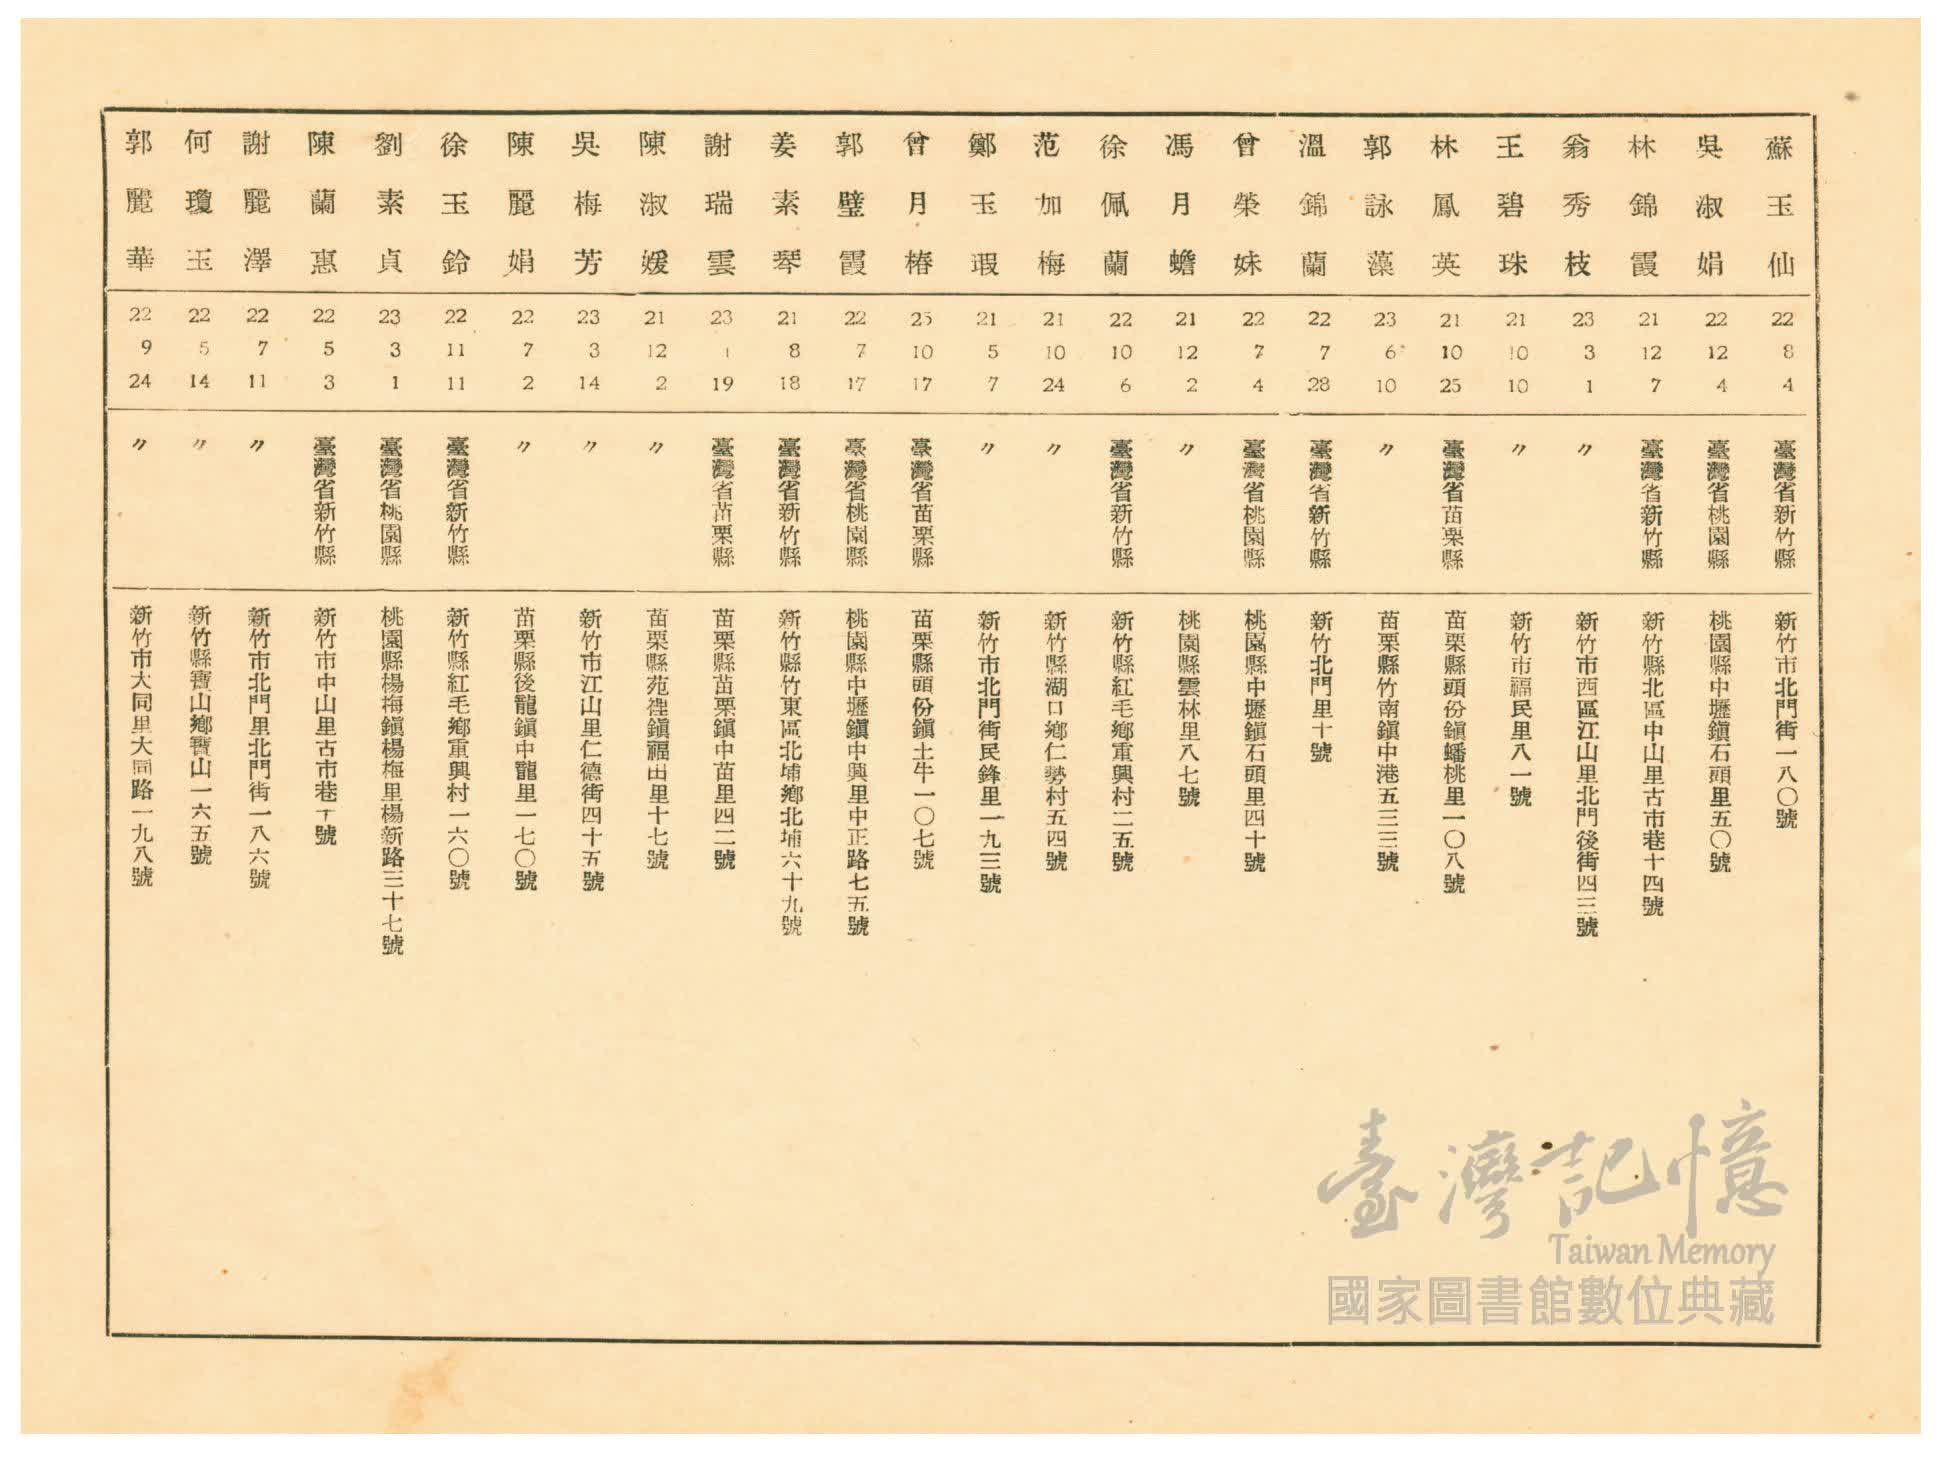 蘇玉仙 22 8 4 臺灣省新竹縣 新竹市北門街一八〇號
吳淑娟 22 12 4 臺灣省桃園縣 桃園縣中壢鎭石頭里五〇號
林錦霞 21 12 7 臺灣省新竹縣 新竹縣北區中山里古市巷十四號
翁秀枝 23 3 1 〃 新竹市西區江山里北門後街四三號
王碧珠 21 10 10 〃 新竹市福民里八一號
林鳳英 21 10 25 臺灣省苗栗縣 苗栗縣頭份鎭蟠桃里一〇八號
郭詠藻 23 6 10 〃 苗栗縣竹南鎭中港五三三號
溫錦蘭 22 7 28 臺灣省新竹縣 新竹北門里十號
曾榮妹 22 7 4 臺灣省桃園縣 桃園縣中壢鎭石頭里四十號
馮月蟾 21 12 2 〃 桃園縣雲林里八七號
徐佩蘭 22 10 6 臺灣省新竹縣 新竹縣紅毛鄉重興村二五號
范加梅 21 10 24 〃 新竹縣湖口鄉仁勢村五四號
鄭玉瑕 21 5 7 〃 新竹市北門街民鋒里一九三號
曾月椿 25 10 17 臺灣省苗栗縣 苗栗縣頭份鎭土牛一〇七號
郭璧霞 22 7 17 臺灣省桃園縣 桃園縣中壢鎭中興里中正路七五號
姜素琴 21 8 18 臺灣省新竹縣 新竹縣竹東區北埔鄉北埔六十九號
謝瑞雲 23 1 19 臺灣省苗栗縣 苗栗縣苗栗鎭中苗里四二號
陳淑媛 21 12 2 〃 苗栗縣苑裡鎭福田里十七號
吳梅芳 23 3 14 〃 新竹市江山里仁德街四十五號
陳麗娟 22 7 2 〃 苗栗縣後龍鎭中龍里一七〇號
徐玉鈴 22 11 11 臺灣省新竹縣 新竹縣紅毛鄉重興村一六〇號
劉素貞 23 3 1 臺灣省桃園縣 桃園縣楊梅鎭楊梅里楊新路三十七號
陳蘭惠 22 5 3 臺灣省新竹縣 新竹市中山里古市巷十號
謝麗澤 22 7 11 〃 新竹市北門里北門街一八六號
何瓊玉 22 5 14 〃 新竹縣寶山鄉寶山一六五號
郭麗華 22 9 24 〃 新竹市大同里大同路一九八號
臺灣記憶
Taiwan Memory
國家圖書館數位典藏